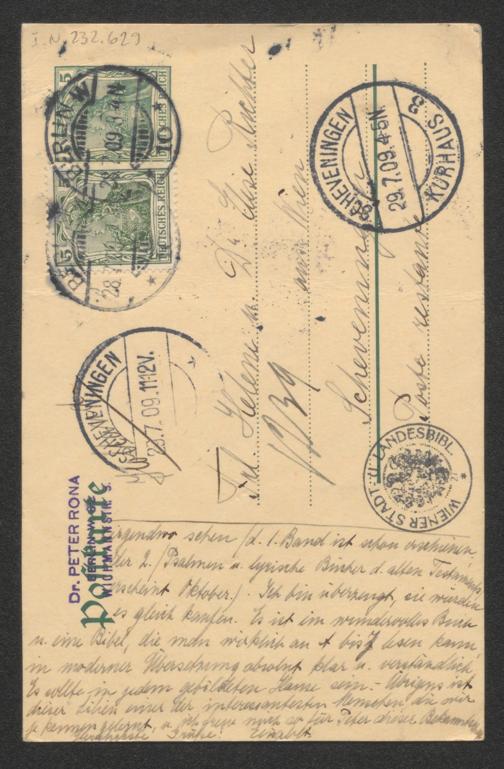 I.N. 232.629
5
DEUTSCHES REICH
5
DEUTSCHES REICH
10
BERLIN W
28.7.09
SCHEVENINGEN
29.7.09.4-5N.
KURHAUS 3
SCHEVENINGEN
29.7.09.11-12V.
Frl. Helene u. Dr. Elise Richter
aus Wien
Scheveningen
Poste restante
WIENER STADT- U. LANDESBIBL.
Dr. PETER RONA
BERLIN W. 62
WICHMANNSTR. 3.
Postkarte
irgendwo sehen (d. 1. Band ist schon erschienen,
der 2. (Psalmen u. lyrische Bücher d. alten Testaments)
erscheint Oktober.) Ich bin überzeugt, sie würden
es gleich kaufen. Es ist ein wundervolles Buch
u. eine Bibel, die man wirklich an + bis z lesen kann,
in moderner Übersetzung absolut klar u. verständlich.
Es sollte in jedem gebildeten Hause sein. - Übrigens ist
dieser einer der interessantesten Menschen, die wir
je kennen gelernt, u. ich freue mich so für Peter dieser
Grüße. Elisabet.